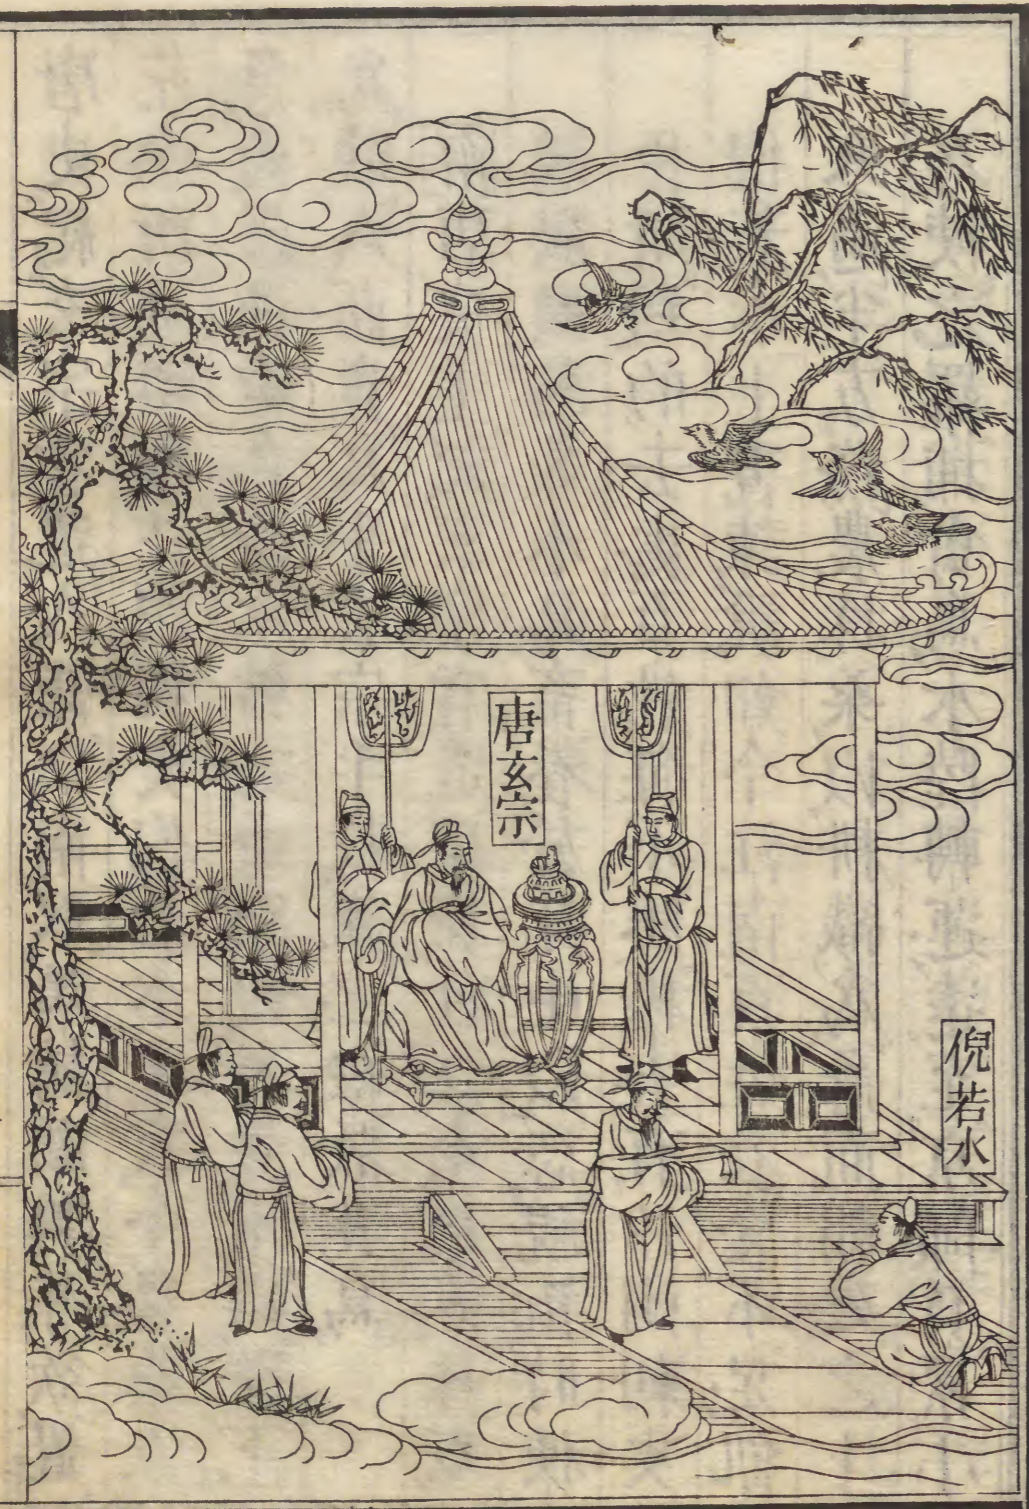 唐玄宗
倪若水